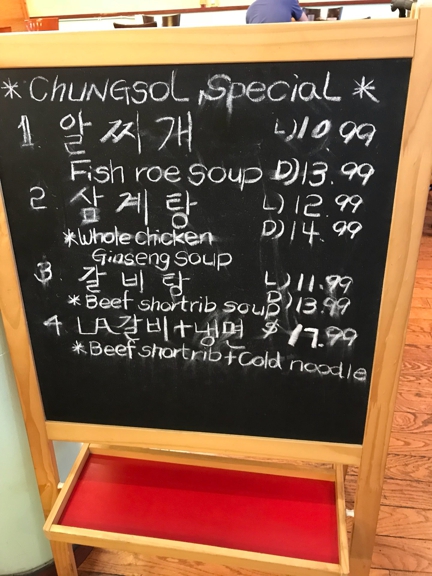 * CHUNGSOL Special *
1. 알 찌 개 L)10.99
Fish roe soup D)13.99
2 삼 계 탕 L) 12.99
*Whole chicken D) 14.99
Ginseng soup
3 갈 비 탕 L) 11.99
* Beef shortrib soup D) 13.99
4. LA갈비+냉면 $ 17.99
*Beef shortrib+Cold noodle